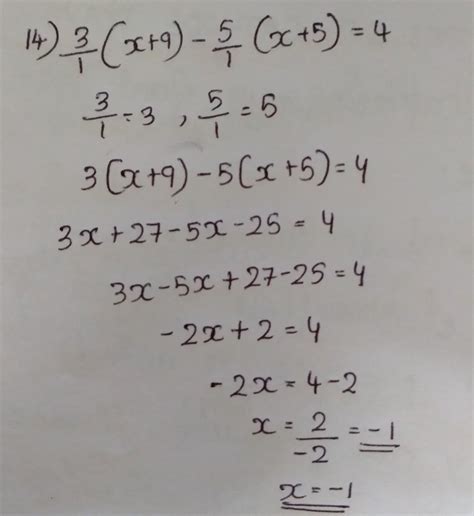 14) 3/1 (x+9) - 5/1 (x+5) = 4
3/1 = 3 , 5/1 = 5
3(x+9) - 5(x+5) = 4
3x + 27 - 5x - 25 = 4
3x - 5x + 27 - 25 = 4
- 2x + 2 = 4
- 2x = 4 - 2
x = 2/-2 = -1
x = -1